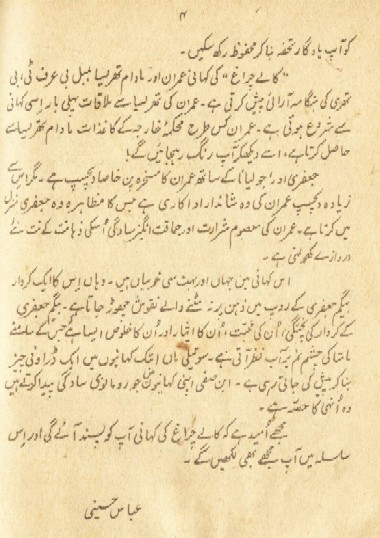 ۴
کو آپ یادگار تحفہ بنا کر محفوظ رکھ سکیں۔
”کالے چراغ“ کی کہانی عمران اور مادام تھریسیا بمبل بی عرف ٹی، بی
تھری کی ہنگامہ آرائی پیش کرتی ہے۔ عمران کی تھریسیا سے ملاقات پہلی بار اسی کہانی
سے شروع ہوتی ہے۔ عمران کس طرح محکمۂ خارجہ کے کاغذات مادام تھریسیا سے
حاصل کرتا ہے، اسے دیکھکر آپ دنگ رہجائیں گے!
جعفری اور ’جولیانا‘ کے ساتھ عمران کا مسخرہ پن خاصا دلچسپ ہے۔ مگر اس سے
زیادہ دلچسپ عمران کی وہ شاندار اداکاری ہے جس کا مظاہرہ وہ جعفری منزل
میں کرتا ہے۔ عمران کی معصوم شرارت اور حماقت انگیز سادگی اُسکی ذہانت کے نت نئے
دروازے کھولتی ہے۔
اس کہانی میں جہاں اور بہت سی خوبیاں ہیں۔ وہاں اس کا ایک کردار
بیگم جعفری کے روپ میں ذہن پر نہ مٹنے والے نقوش چھوڑ جاتا ہے۔ بیگم جعفری
کے کردار کی پختگی، اُن کی محبت، اُن کا ایثار اور اُن کا خلوص ایسا ہے جس کے سامنے
مامتا کی چشم نم نظر آتی ہے۔ سوتیلی ماں ابتک کہانیوں میں ایک ڈراؤنی چیز
بنا کر پیش کی جاتی رہی ہے۔ ابن صفی اپنی کہانیوں میں جو رومانوی سادگی پیدا کرتے ہیں
وہ اُنہی کا حصّہ ہے۔
مجھے اُمید ہے کہ کالے چراغ کی کہانی آپ کو پسند آئے گی اور اس
سلسلہ میں آپ مجھے بھی لکھیں گے۔
عباس حسینی